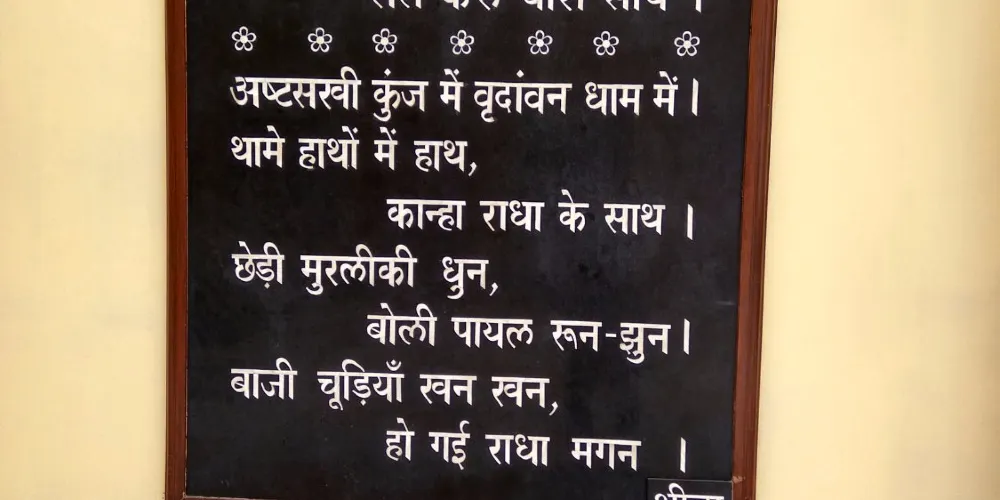 अष्टसखी कुंज में वृदांवन धाम में।
थामे हाथों में हाथ,
कान्हा राधा के साथ ।
छेड़ी मुरलीकी धुन,
बोली पायल रून-झुन।
बाजी चूड़ियाँ खन खन,
हो गई राधा मगन ।